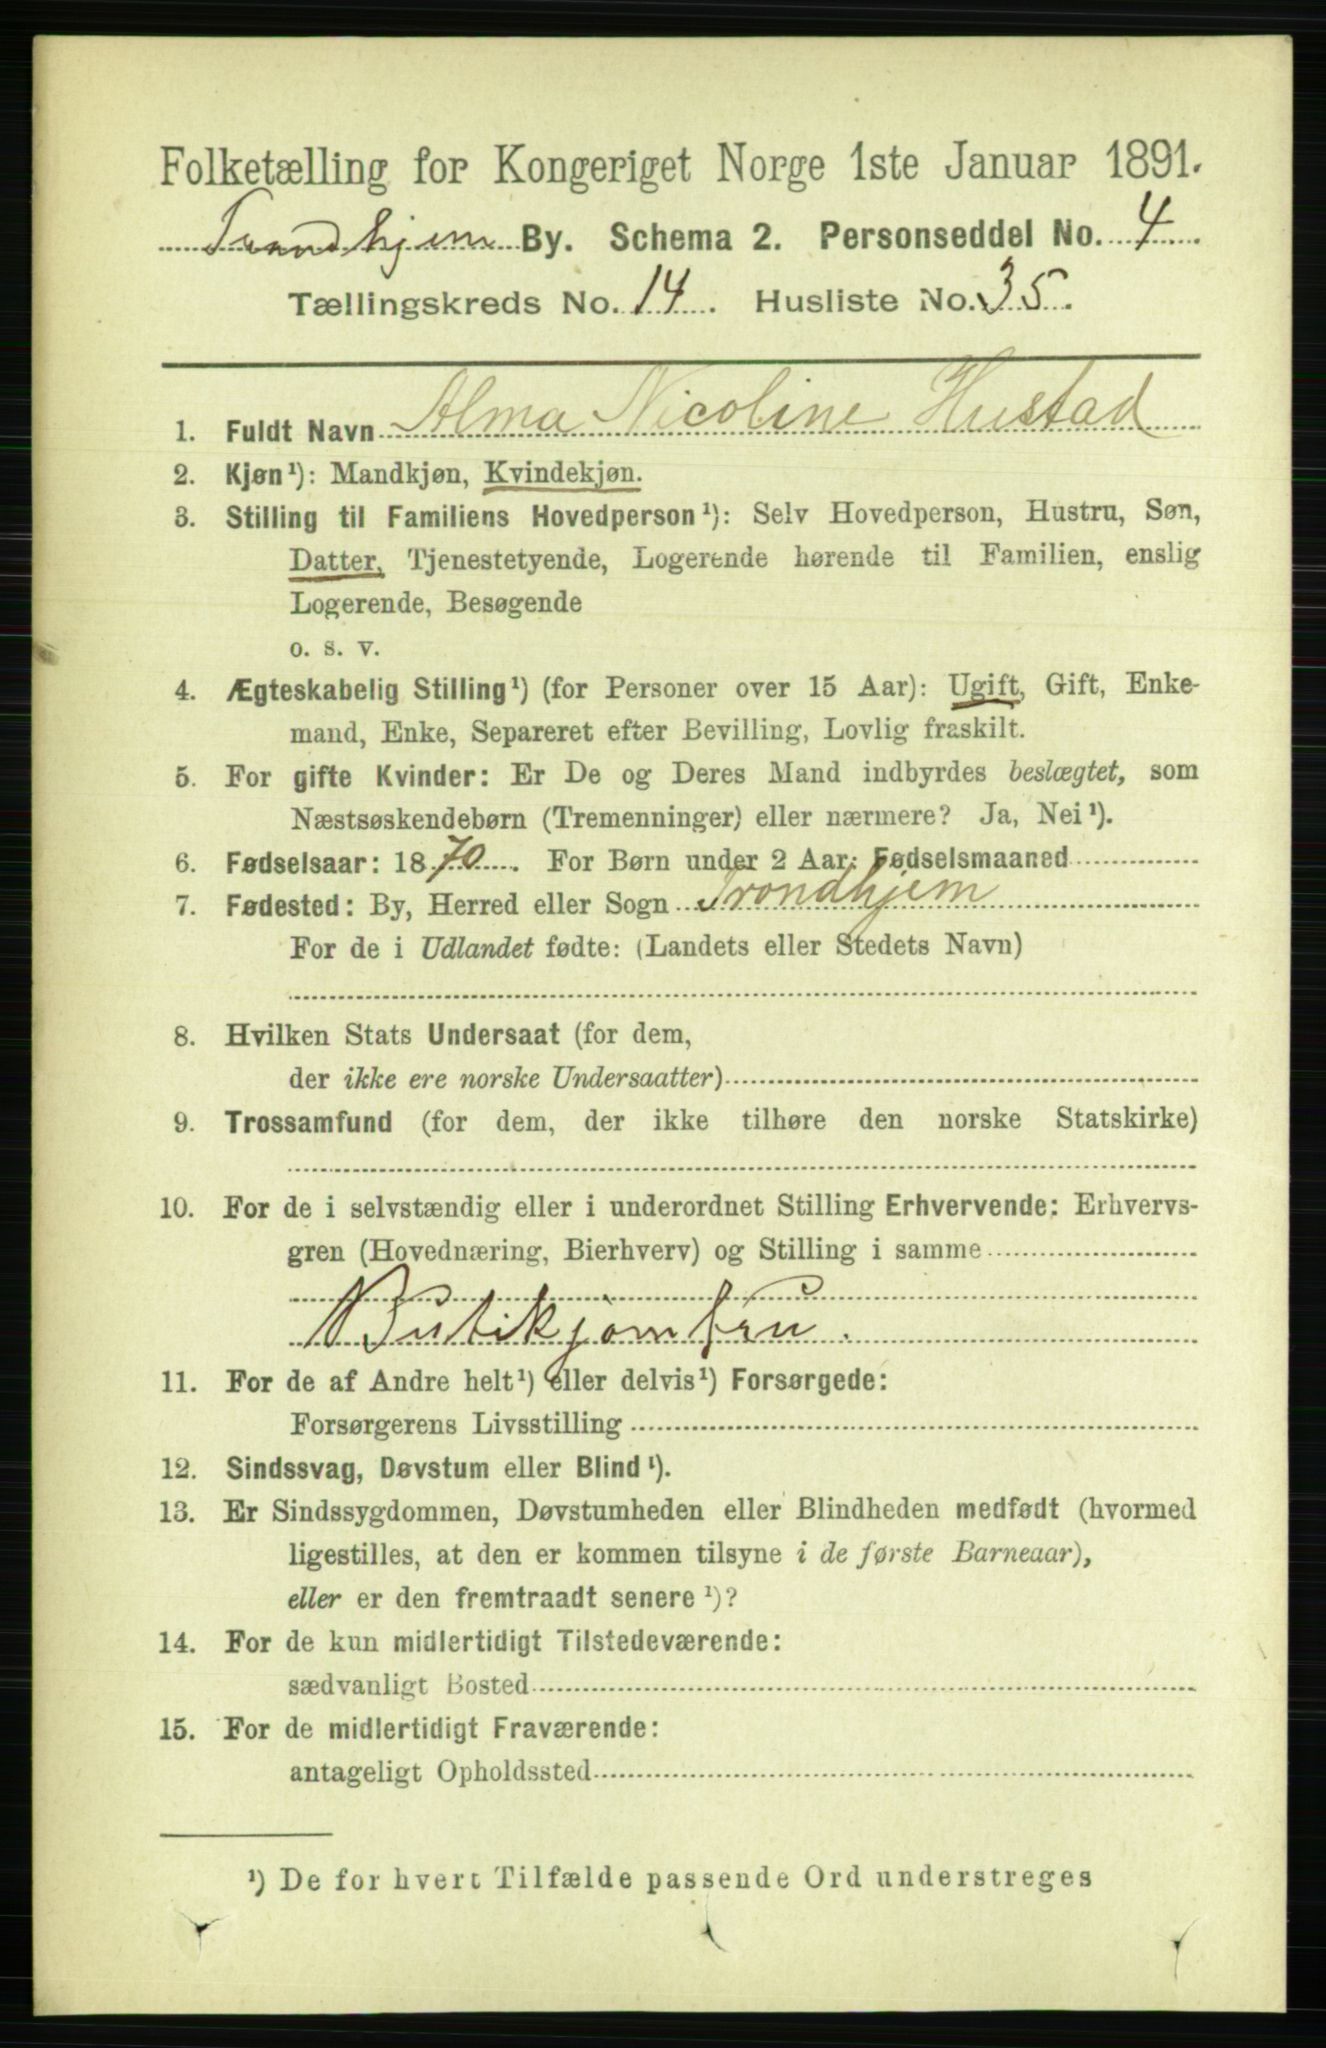 Folketælling for Kongeriget Norge 1ste Januar 1891.
Trondhjem By. Schema 2. Personseddel No. 4
Tællingskreds No. 14. Husliste No. 35.
1. Fuldt Navn Alma Nicoline Hustad
2. Kjøn¹): Mandkjøn, Kvindekjøn.
3. Stilling til Familiens Hovedperson¹): Selv Hovedperson, Hustru, Søn,
Datter, Tjenestetyende, Logerende hørende til Familien, enslig
Logerende, Besøgende
o. s. v.
4. Ægteskabelig Stilling¹) (for Personer over 15 Aar): Ugift, Gift, Enke-
mand, Enke, Separeret efter Bevilling, Lovlig fraskilt.
5. For gifte Kvinder: Er De og Deres Mand indbyrdes beslægtet, som
Næstsøskendebørn (Tremenninger) eller nærmere? Ja, Nei¹).
6. Fødselsaar: 1870. For Børn under 2 Aar: Fødselsmaaned
7. Fødested: By, Herred eller Sogn Trondhjem
For de i Udlandet fødte: (Landets eller Stedets Navn)
8. Hvilken Stats Undersaat (for dem,
der ikke ere norske Undersaatter)
9. Trossamfund (for dem, der ikke tilhøre den norske Statskirke)
10. For de i selvstændig eller i underordnet Stilling Erhvervende: Erhvervs-
gren (Hovednæring, Bierhverv) og Stilling i samme
Butikjomfru.
11. For de af Andre helt¹) eller delvis¹) Forsørgede:
Forsørgerens Livsstilling
12. Sindssvag, Døvstum eller Blind¹).
13. Er Sindssygdommen, Døvstumheden eller Blindheden medfødt (hvormed
ligestilles, at den er kommen tilsyne i de første Barneaar),
eller er den fremtraadt senere¹)?
14. For de kun midlertidigt Tilstedeværende:
sædvanligt Bosted
15. For de midlertidigt Fraværende:
antageligt Opholdssted
¹) De for hvert Tilfælde passende Ord understreges